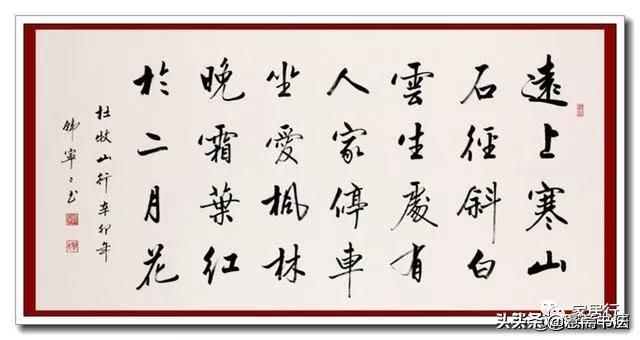 遠上寒山
石徑斜白
雲生處有
人家停車
坐愛楓林
晚霜葉紅
於二月花
杜牧山行 辛卯年
寧 书
家居行
头条 @ 斋书法